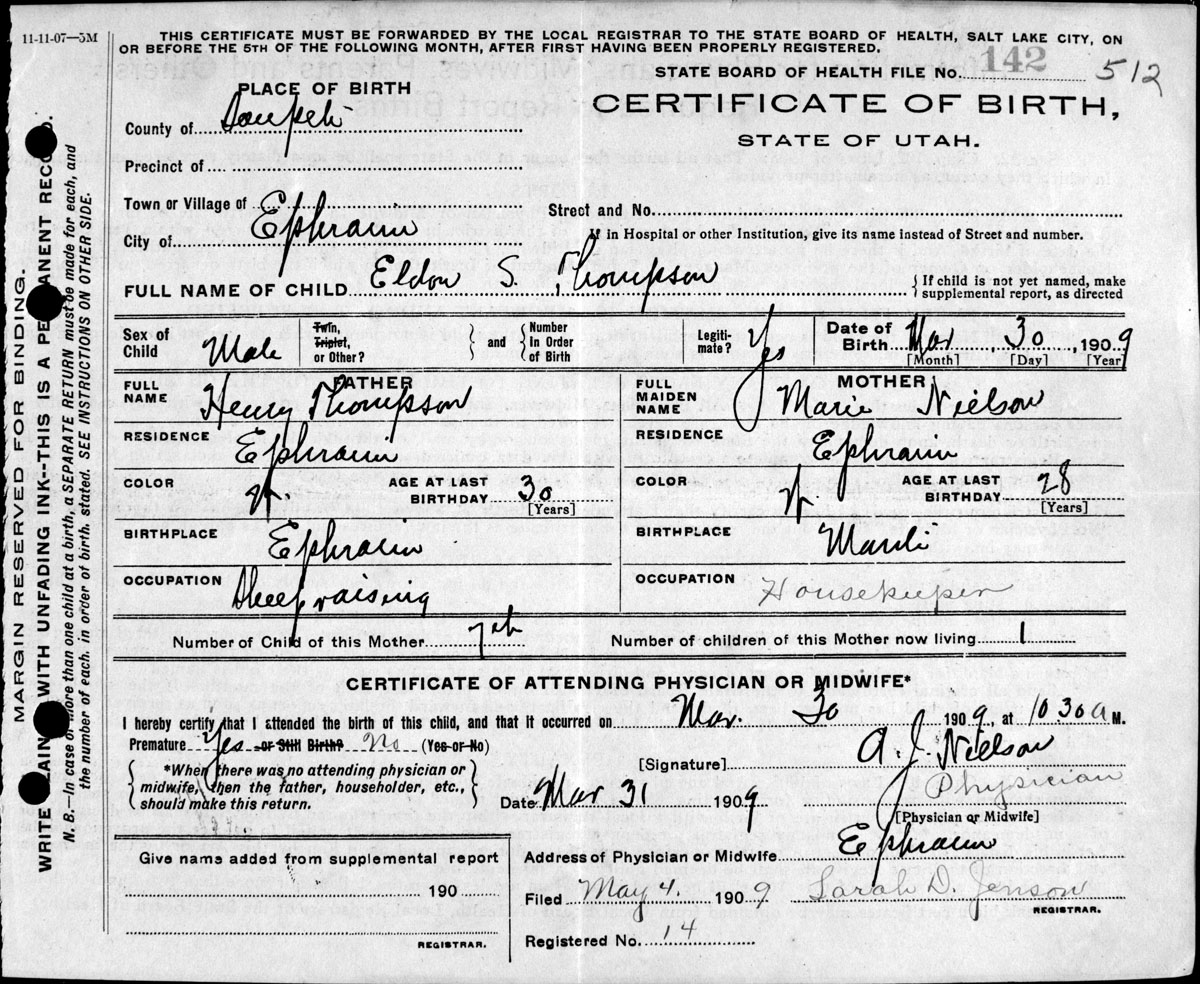 11-11-07—5M
THIS CERTIFICATE MUST BE FORWARDED BY THE LOCAL REGISTRAR TO THE STATE BOARD OF HEALTH, SALT LAKE CITY, ON
OR BEFORE THE 5TH OF THE FOLLOWING MONTH, AFTER FIRST HAVING BEEN PROPERLY REGISTERED.
STATE BOARD OF HEALTH FILE No. 142 512
PLACE OF BIRTH
CERTIFICATE OF BIRTH,
STATE OF UTAH.
County of Sanpete
Precinct of
Town or Village of
Street and No.
City of Ephraim
If in Hospital or other Institution, give its name instead of Street and number.
FULL NAME OF CHILD Eldon S. Thompson { If child is not yet named, make
supplemental report, as directed
Sex of Child Male
Twin, Triplet, or Other? } and { Number In Order of Birth
Legiti-mate? Yes
Date of Birth Mar 30, 1909
[Month] [Day] [Year]
FATHER
FULL NAME Henry Thompson
MOTHER
FULL MAIDEN NAME Marie Nielson
RESIDENCE Ephraim
RESIDENCE Ephraim
COLOR W. AGE AT LAST BIRTHDAY 30 [Years]
COLOR W AGE AT LAST BIRTHDAY 28 [Years]
BIRTHPLACE Ephraim
BIRTHPLACE Manti
OCCUPATION Sheep raising
OCCUPATION Housekeeper
Number of Child of this Mother 7th Number of children of this Mother now living 1
CERTIFICATE OF ATTENDING PHYSICIAN OR MIDWIFE*
I hereby certify that I attended the birth of this child, and that it occurred on Mar. 30 1909, at 10 30 a M.
Premature Yes or Still Birth? No (Yes or No)
[Signature] A. J. Nielson
{ *When there was no attending physician or
midwife, then the father, householder, etc.,
should make this return. }
Physician
Date Mar 31 1909
[Physician or Midwife]
Give name added from supplemental report
190
REGISTRAR.
Address of Physician or Midwife Ephraim
Filed May 4. 1909 Sarah D. Jenson
REGISTRAR.
Registered No. 14
MARGIN RESERVED FOR BINDING.
WRITE PLAINLY WITH UNFADING INK--THIS IS A PERMANENT RECORD.
N. B.—In case of more than one child at a birth, a SEPARATE RETURN must be made for each, and
the number of each, in order of birth, stated. SEE INSTRUCTIONS ON OTHER SIDE.